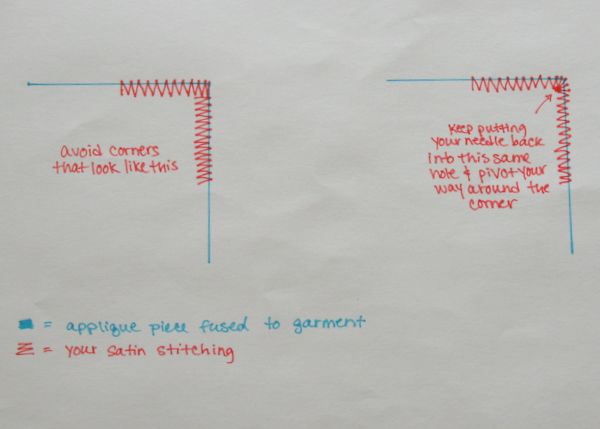 avoid corners
that look like this
keep putting
your needle back
into this same
hole & pivot your
way around the
corner
= applique piece fused to garment
= your satin stitching